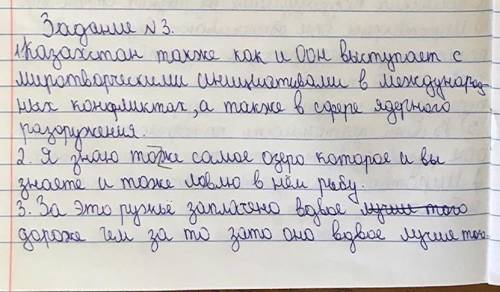 Задание №3.
1. Казахстан также как и Оон выступает с
миротворческими инициативами в международ
ных конфликтах, а также в сфере ядерного
разоружения.
2. Я знаю тоже самое озеро которое и вы
знаете и тоже ловлю в нём рыбу.
3. За это ружьё заплачено вдвое лучше того
дороже чем за то зато оно вдвое лучше того